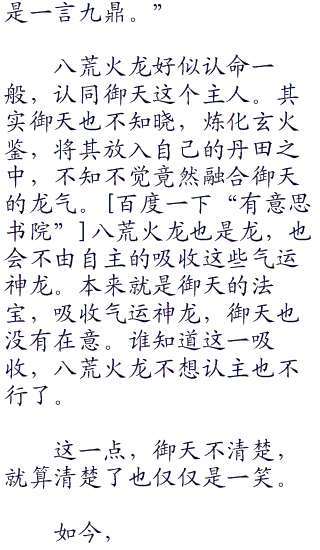 是一言九鼎。”
八荒火龙好似认命一
般，认同御天这个主人。其
实御天也不知晓，炼化玄火
鉴，将其放入自己的丹田之
中，不知不觉竟然融合御天
的龙气。[百度一下“有意思
书院”]八荒火龙也是龙，也
会不由自主的吸收这些气运
神龙。本来就是御天的法
宝，吸收气运神龙，御天也
没有在意。谁知道这一吸
收，八荒火龙不想认主也不
行了。
这一点，御天不清楚，
就算清楚了也仅仅是一笑。
如今，